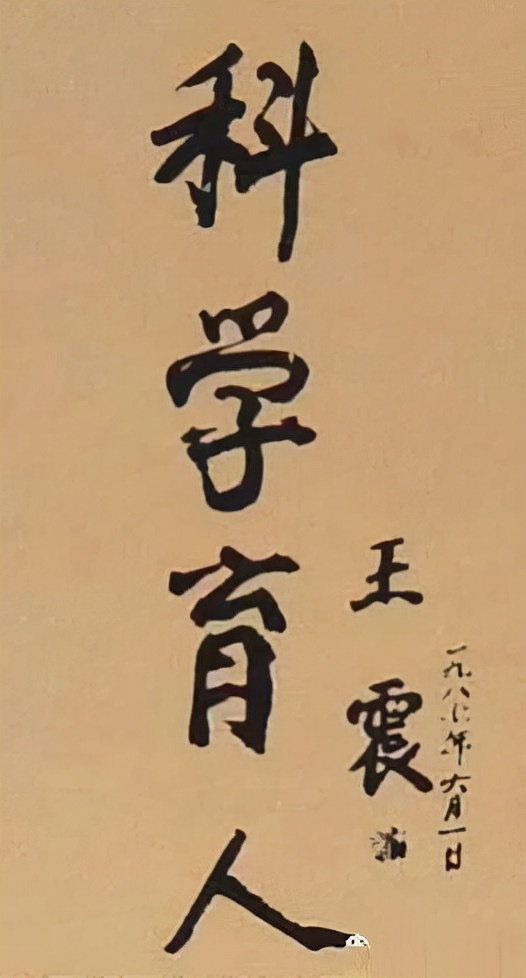 科学育人
王震
一九八七年六月一日